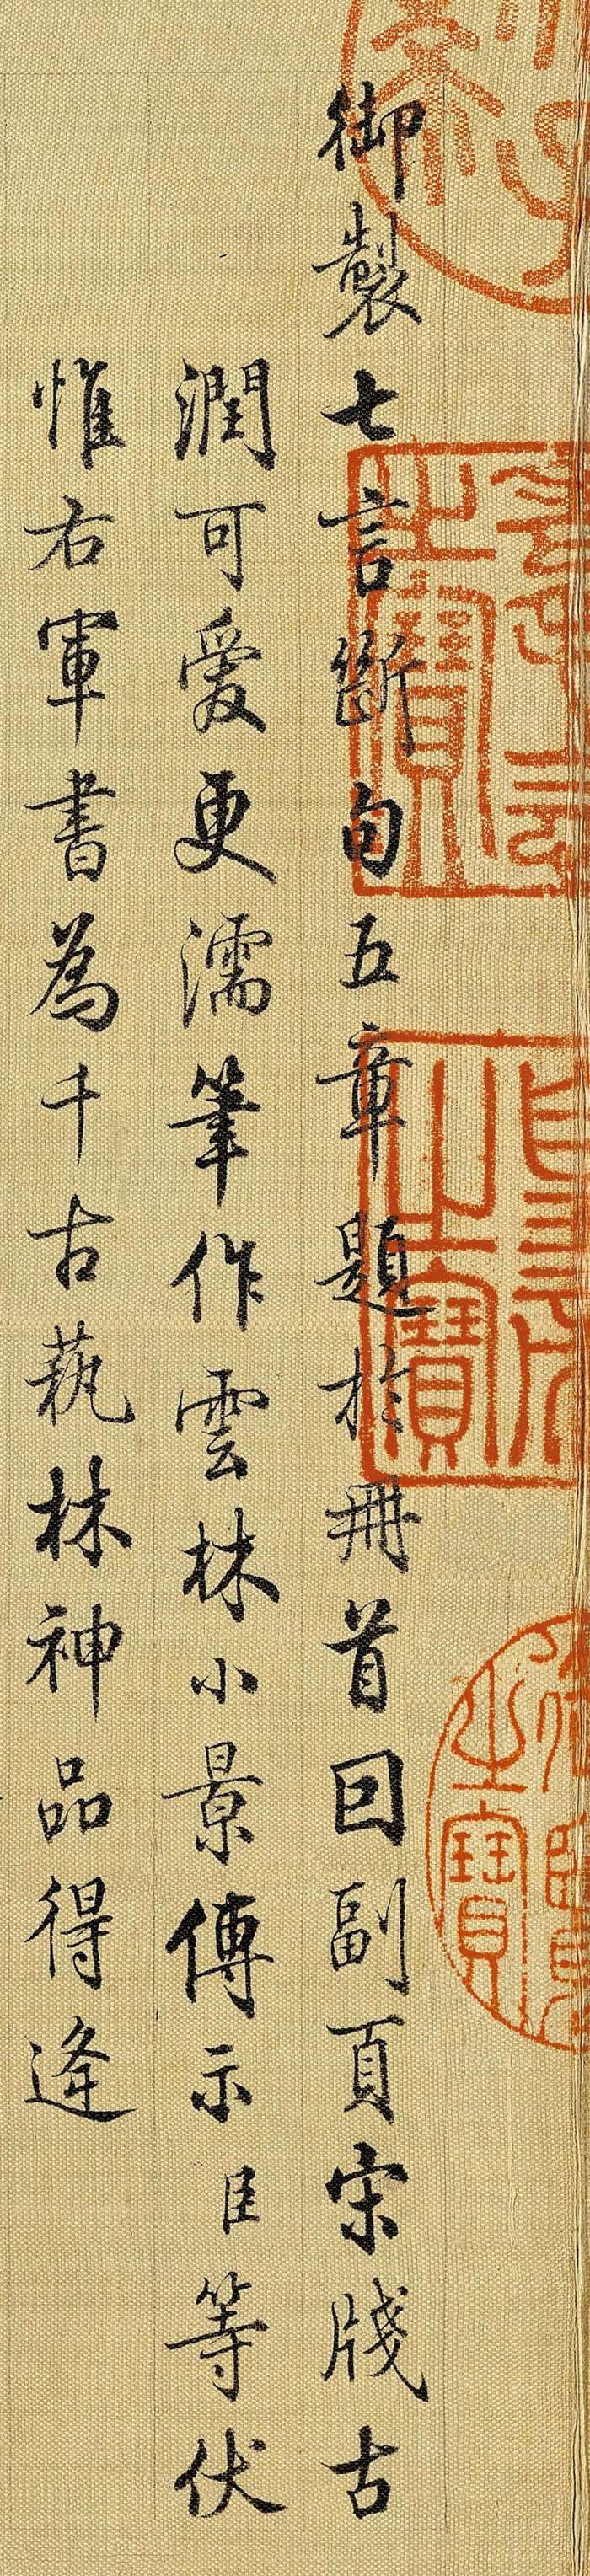 御製七言斷句五章題於冊首曰副頁宋牋古
潤可愛更濡筆作雲林小景傳示臣等伏
惟右軍書為千古蓺林神品得逢